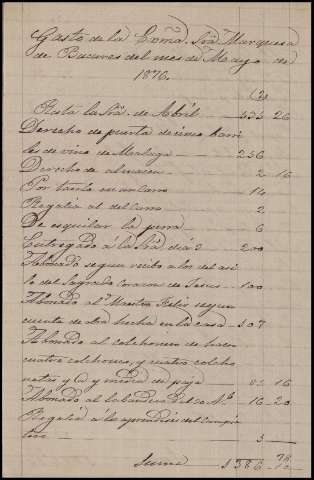 Gasto de la Exma. Sra. Marquesa
de Bucares del mes de Mayo de
1876.
Hasta la Sra. de Abril 26
Derecho de puerta de cinco barri
les de vino de Malaga 256
Derecho de almacen 2 16
Por traerlo en un carro 14
Regalia al del Carro 2
De esquilar la perra 6
Entregado á la Sra. dia 2 200
Abonado segun recibo a los del asi
lo del Sagrado Corazon de Jesus 100
Abonado al Maestro Felix segun
cuenta de obra hecha en la casa 507
Abonado al colchonero de hacer
cuatro colchones, y cuatro colcho
netas y @ y media de paja 82 16
Abonado al labandera 16 20
Regalia á los aprendices del Carpin
tero 3
Suma 1386